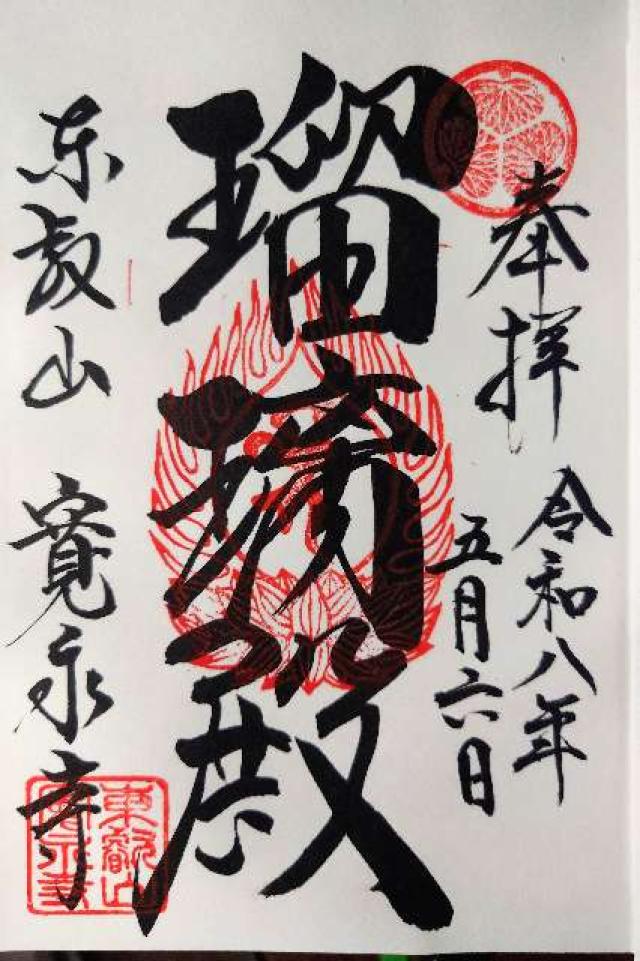 奉拝
令和八年
五月六日
瑠璃殿
东叡山 寛永寺
東叡山
寛永寺